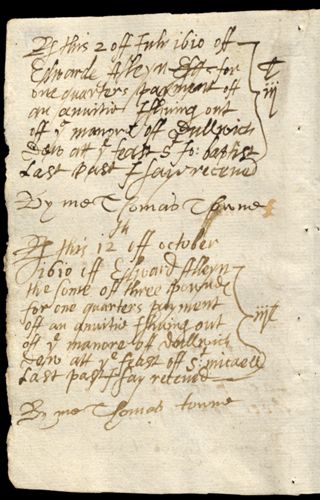 R this 2 off July 1610 off
Edwarde Alleyn Esq for
one quarters payment off
an anuitie Isshuing out
off yᵉ manore off Dullwich
dew att yᵉ feast Sᵗ Jo: baptist
Last past I say receved
iii ˡ
By me Thomas Towne
R this 12th off october
1610 off Edward Alleyn
the some off three pownd
for one quarters payment
off an anuitie Isshuing out
off yᵉ manore off Dullwich
dew att yᵉ feast off Sᵗ micaell
Last past I say receved
iii ˡ
By me Thomas towne